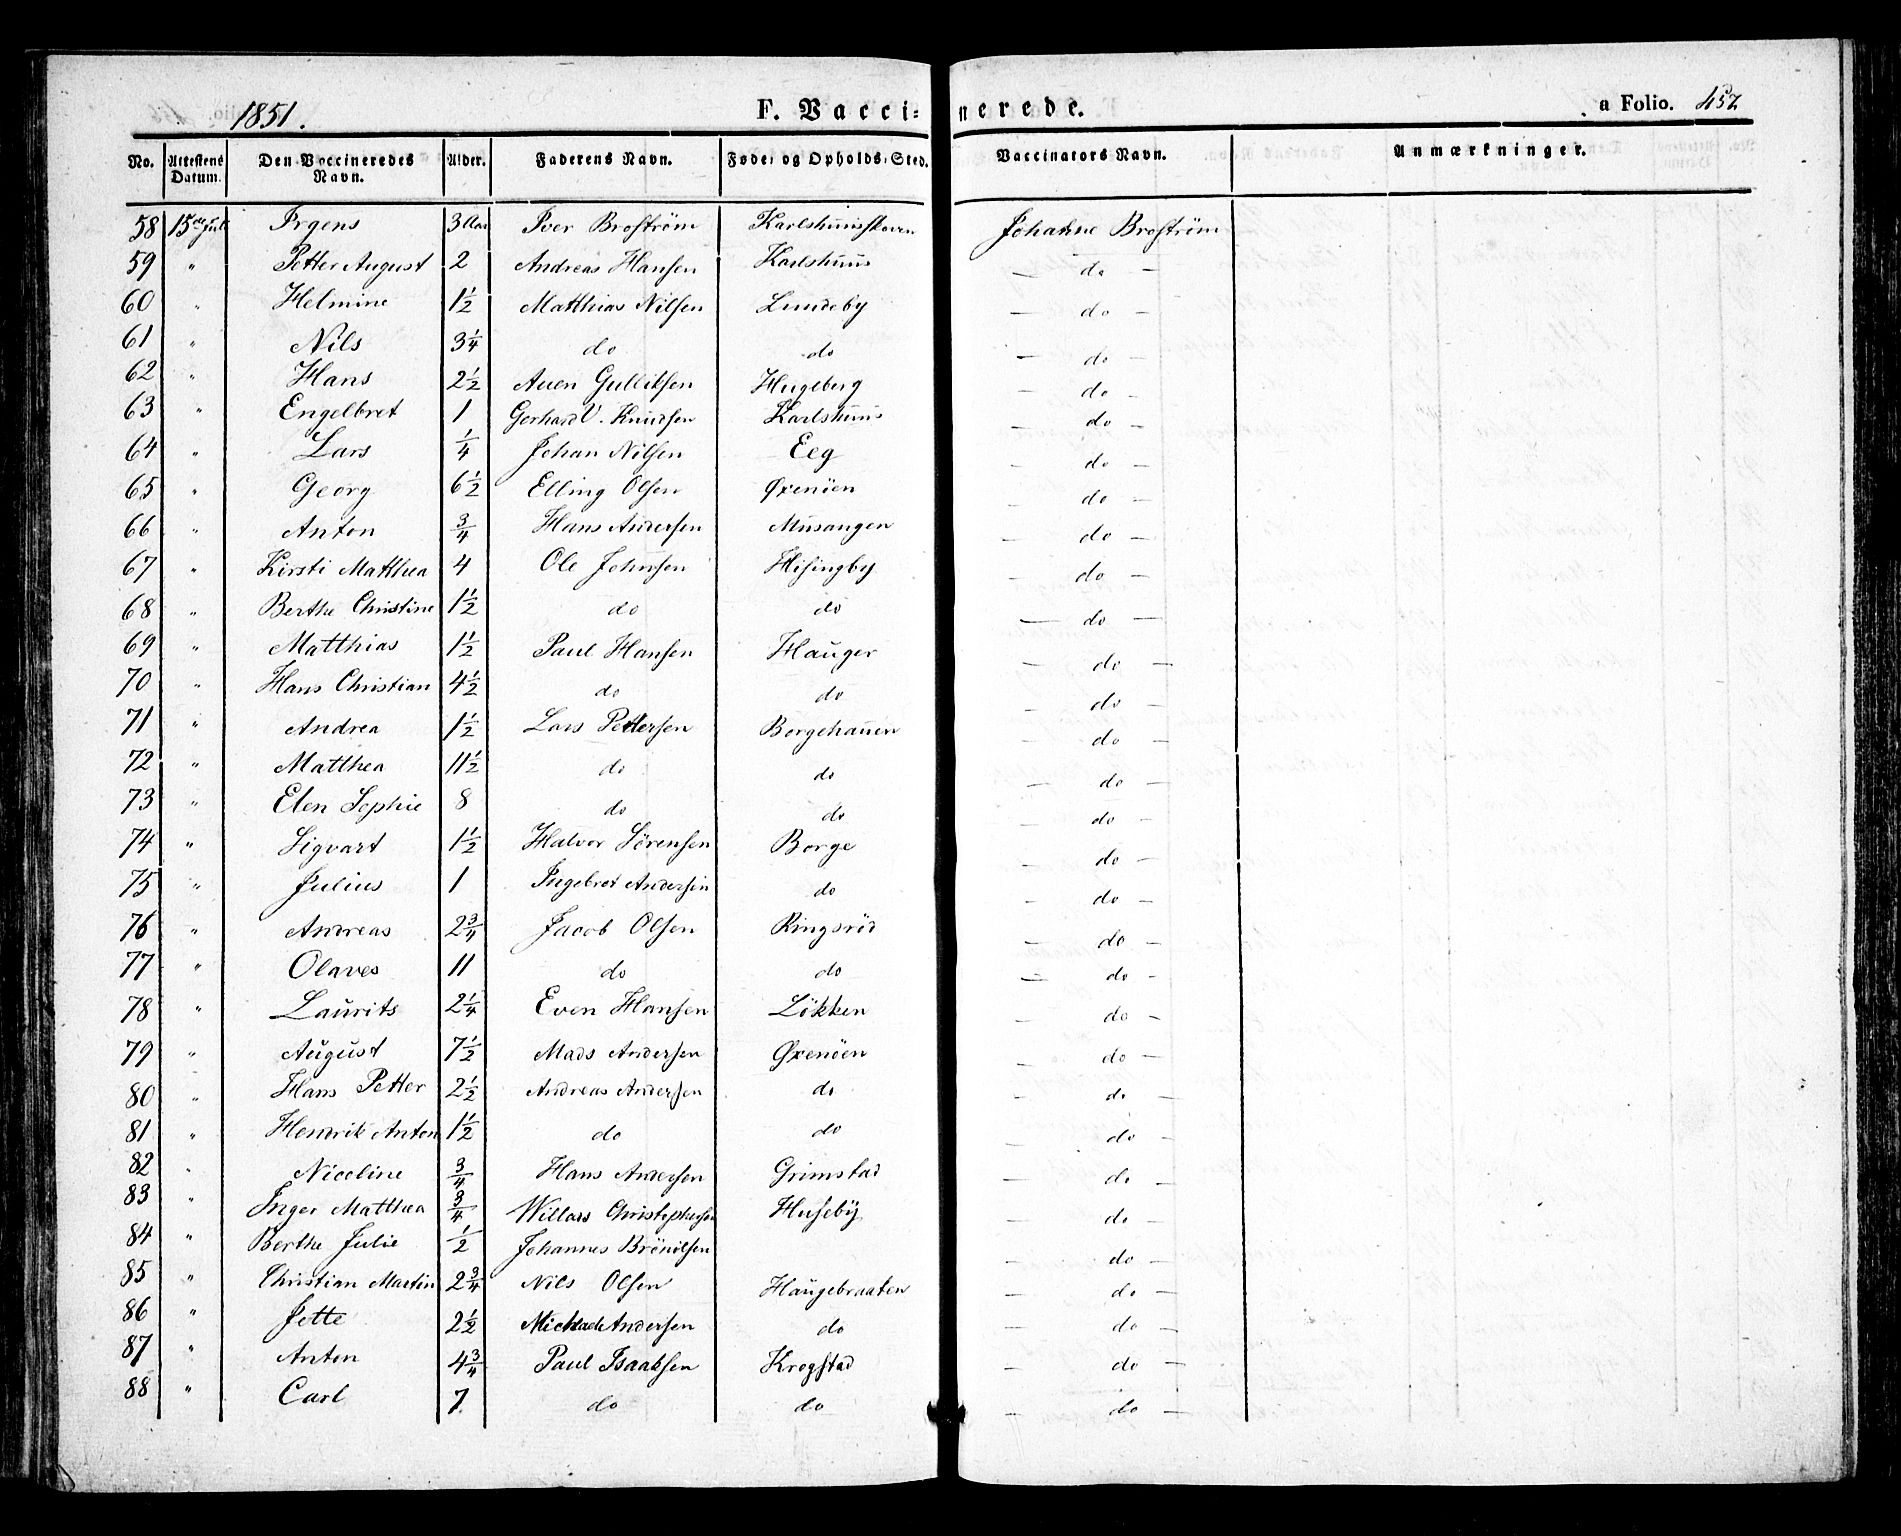 1851. F. Vaccinerede. a Folio. 452
No. Attestens Datum. Den Vaccineredes Navn. Alder. Faderens Navn. Føde- og Opholds-Sted. Vaccinators Navn. Anmærkninger.
58 15de Juli Irgens 3 Aar Iver Broström Karlshuusskoven Johanne Broström
59 " Petter August 2 Andreas Hansen Karlshuus — do —
60 " Helmine 1 1/2 Matthias Nilsen Lundeby — do —
61 " Nils 3 1/4 do do — do —
62 " Hans 2 1/2 Aven Gulliksen Hugeberg — do —
63 " Engelbret 1 Gerhard V. Knudsen Karlshuus — do —
64 " Lars 1/4 Johan Nilsen Eeg — do —
65 " Georg 6 1/2 Elling Olsen Øxenöen — do —
66 " Anton 3/4 Hans Andersen Musangen — do —
67 " Kirsti Matthea 4 Ole Johnsen Hisingby — do —
68 " Berthe Christine 1 1/2 do do — do —
69 " Matthias 1 1/2 Paul Hansen Hauger — do —
70 " Hans Christian 4 1/2 do do — do —
71 " Andrea 1 1/2 Lars Pettersen Borgehauen — do —
72 " Matthea 11 1/2 do do — do —
73 " Elen Sophie 8 do do — do —
74 " Sigvart 1 1/2 Halvor Sörensen Borge — do —
75 " Julius 1 Ingebret Andersen do — do —
76 " Andreas 2 3/4 Jacob Olsen Ringsröd — do —
77 " Olaves 11 do do — do —
78 " Laurits 2 1/4 Even Hansen Lökken — do —
79 " August 7 1/2 Mads Andersen Øxenöen — do —
80 " Hans Petter 2 1/2 Andreas Andersen do — do —
81 " Hendrik Anton 1 1/2 do do — do —
82 " Nicoline 3/4 Hans Andersen Grimstad — do —
83 " Inger Matthea 3/4 Willars Christophersen Huseby — do —
84 " Berthe Julie 1/2 Johannes Brönilsen — do —
85 " Christian Martin 2 3/4 Nils Olsen Haugebraaten — do —
86 " Jette 2 1/2 Andersen do — do —
87 " Anton 4 3/4 Paul Isaaksen Krogstad — do —
88 " Carl 7 do do — do —